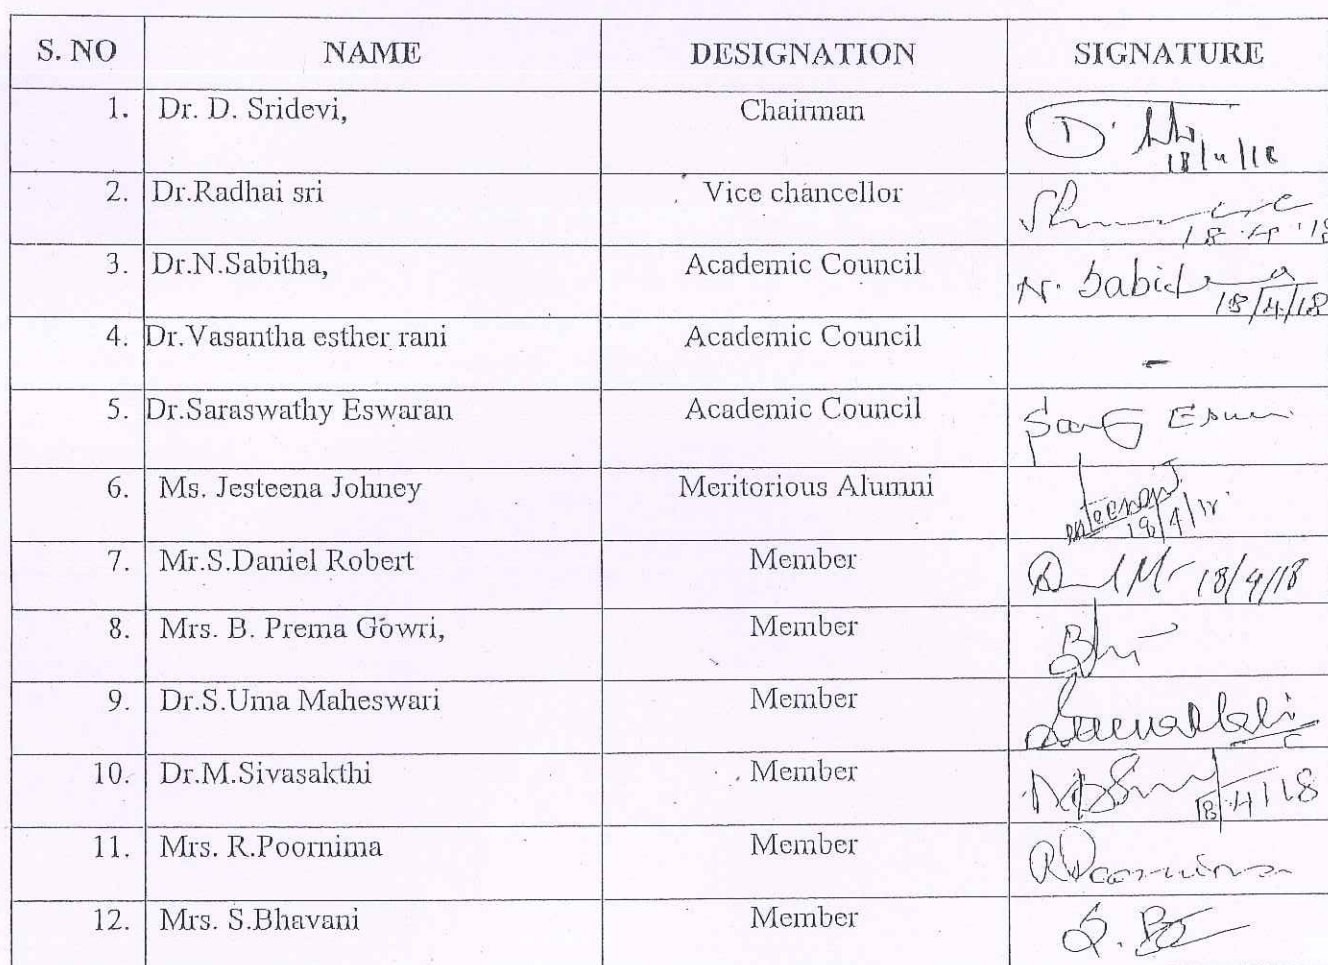 S. NO NAME DESIGNATION SIGNATURE
1. Dr. D. Sridevi, Chairman D. 18/4/18
2. Dr.Radhai sri Vice chancellor 18.4.18
3. Dr.N.Sabitha, Academic Council N. Sabitha 18/4/18
4. Dr.Vasantha esther rani Academic Council -
5. Dr.Saraswathy Eswaran Academic Council
6. Ms. Jesteena Johney Meritorious Alumni 18/4/18
7. Mr.S.Daniel Robert Member 18/4/18
8. Mrs. B. Prema Gowri, Member
9. Dr.S.Uma Maheswari Member
10. Dr.M.Sivasakthi Member 18/4/18
11. Mrs. R.Poornima Member R Poornima
12. Mrs. S.Bhavani Member